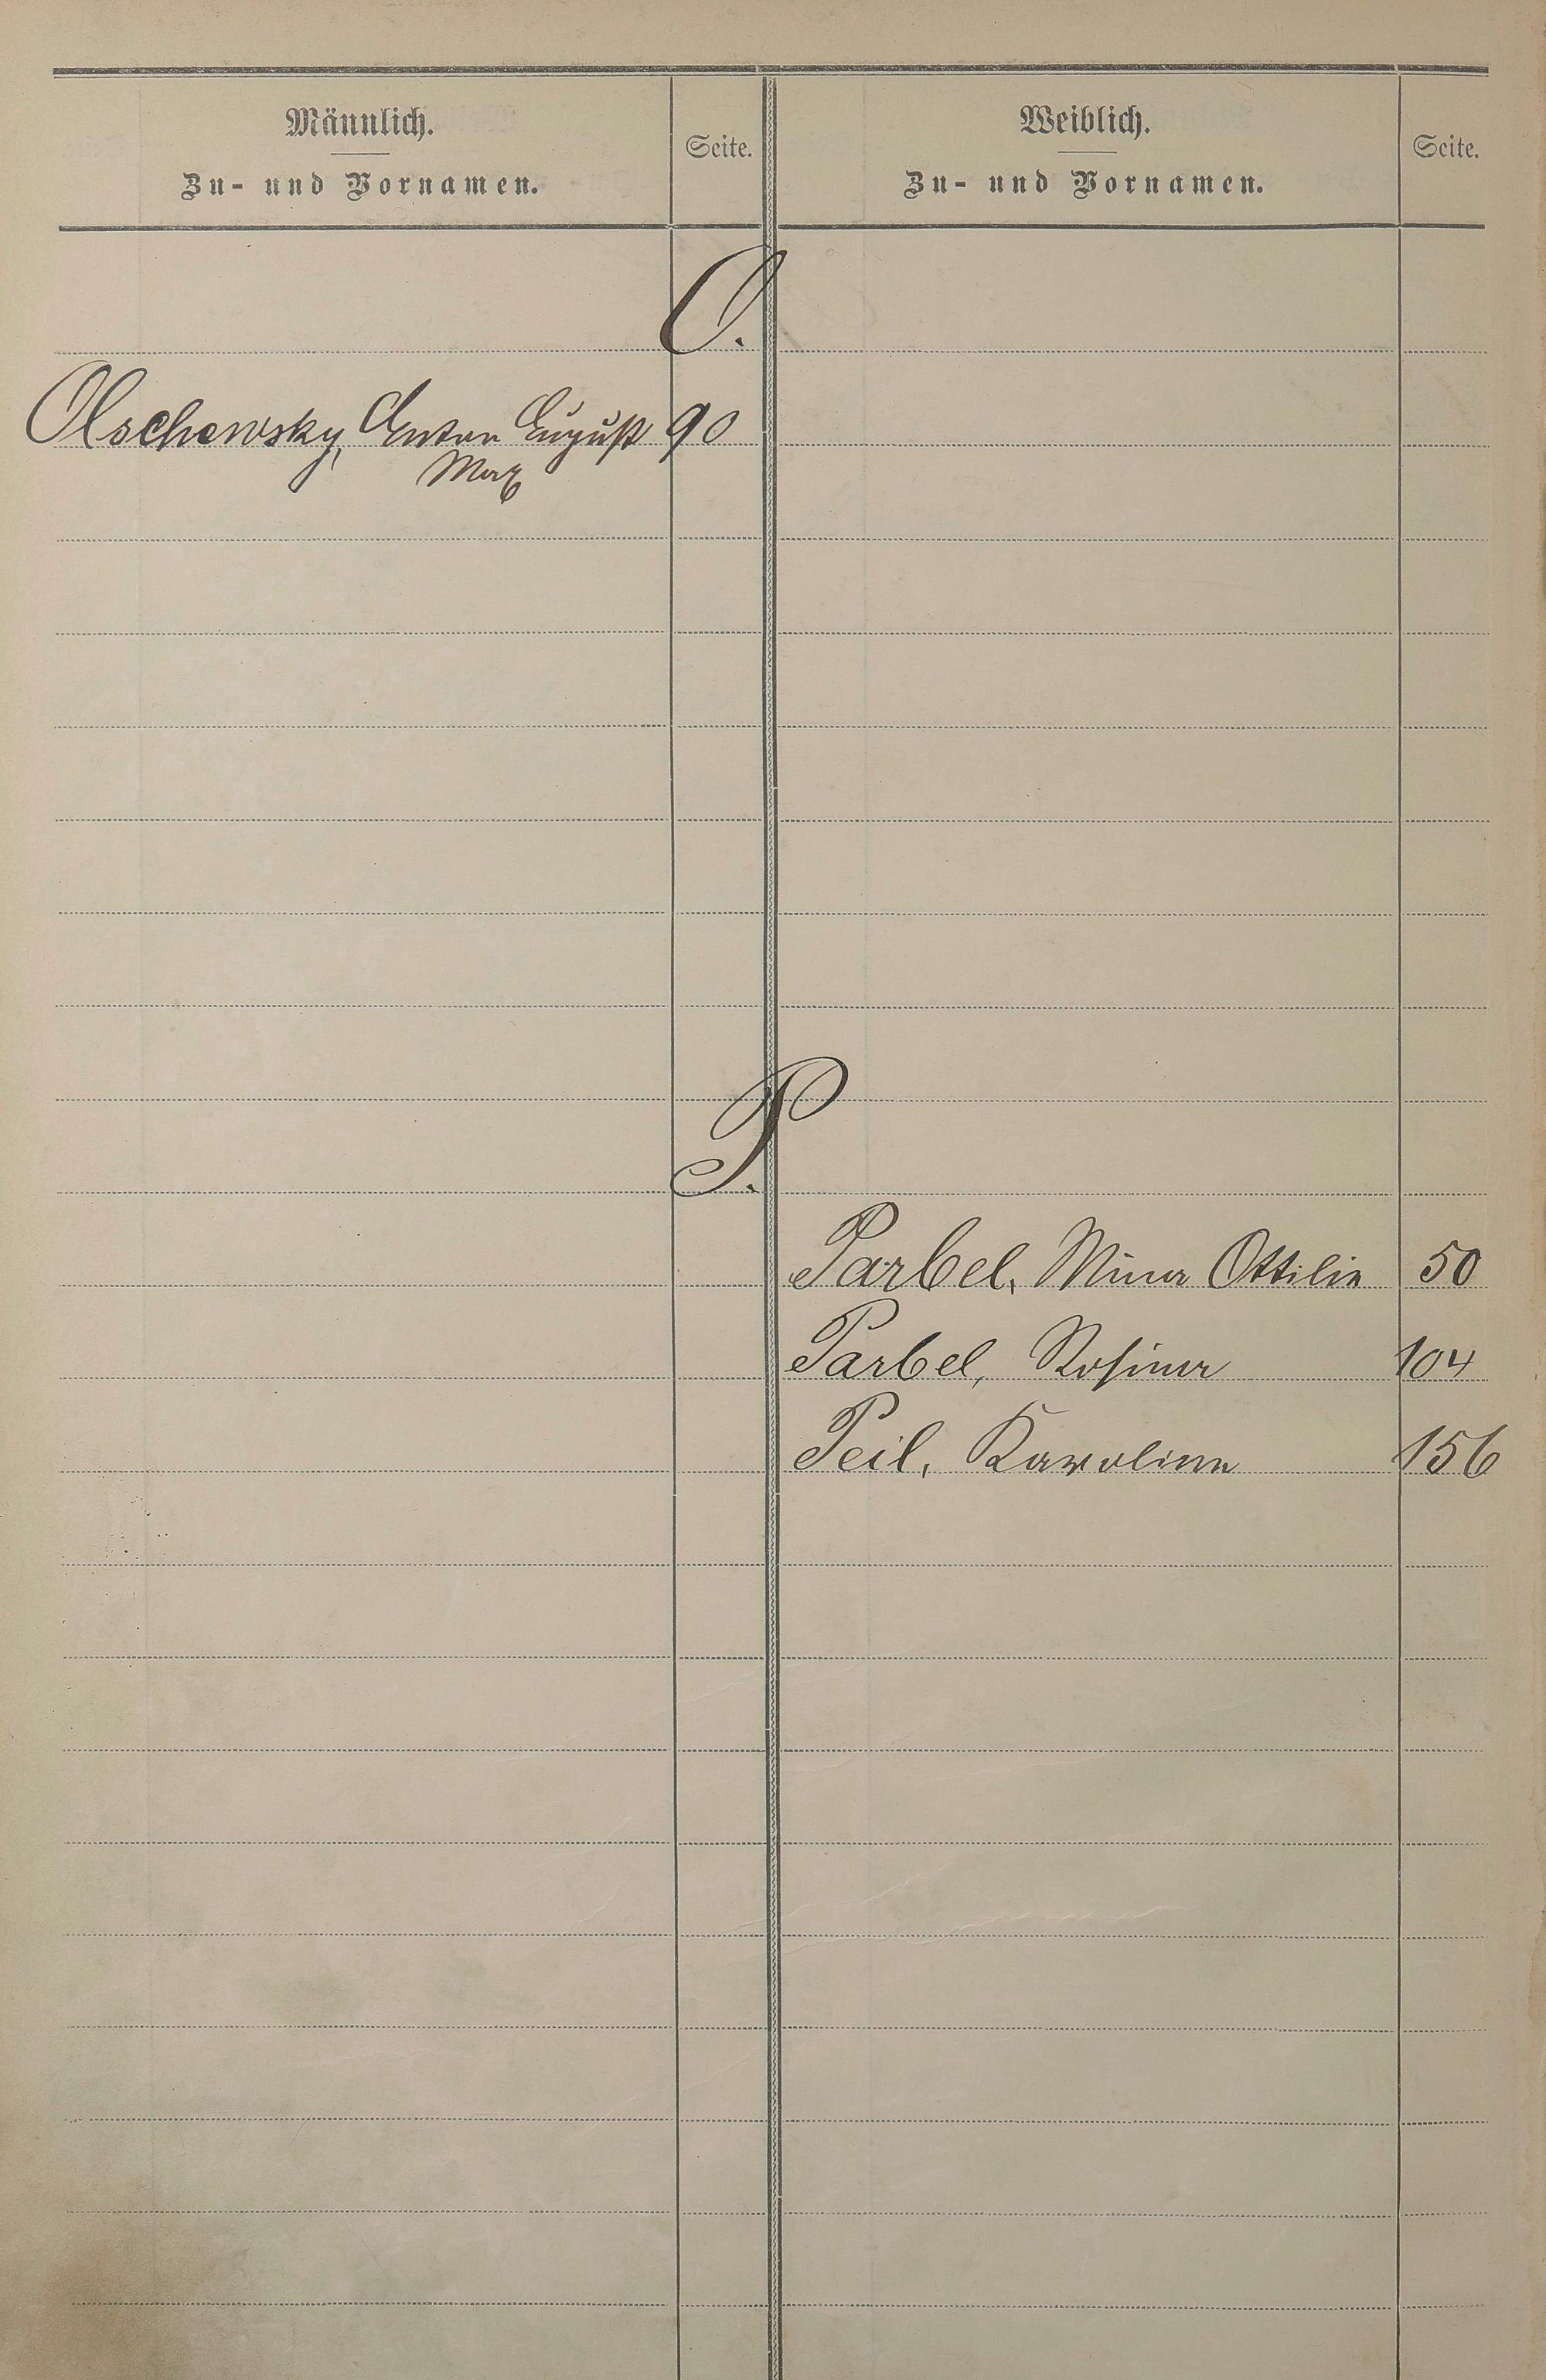 Männlich.
Zu- und Vornamen.
Seite.
Weiblich.
Zu- und Vornamen.
Seite.
O.
Olschewsky, Anton August 90
Max
P.
Parbel, Minna Ottilie 50
Parbel, Rosina 104
Peil, Karoline 156